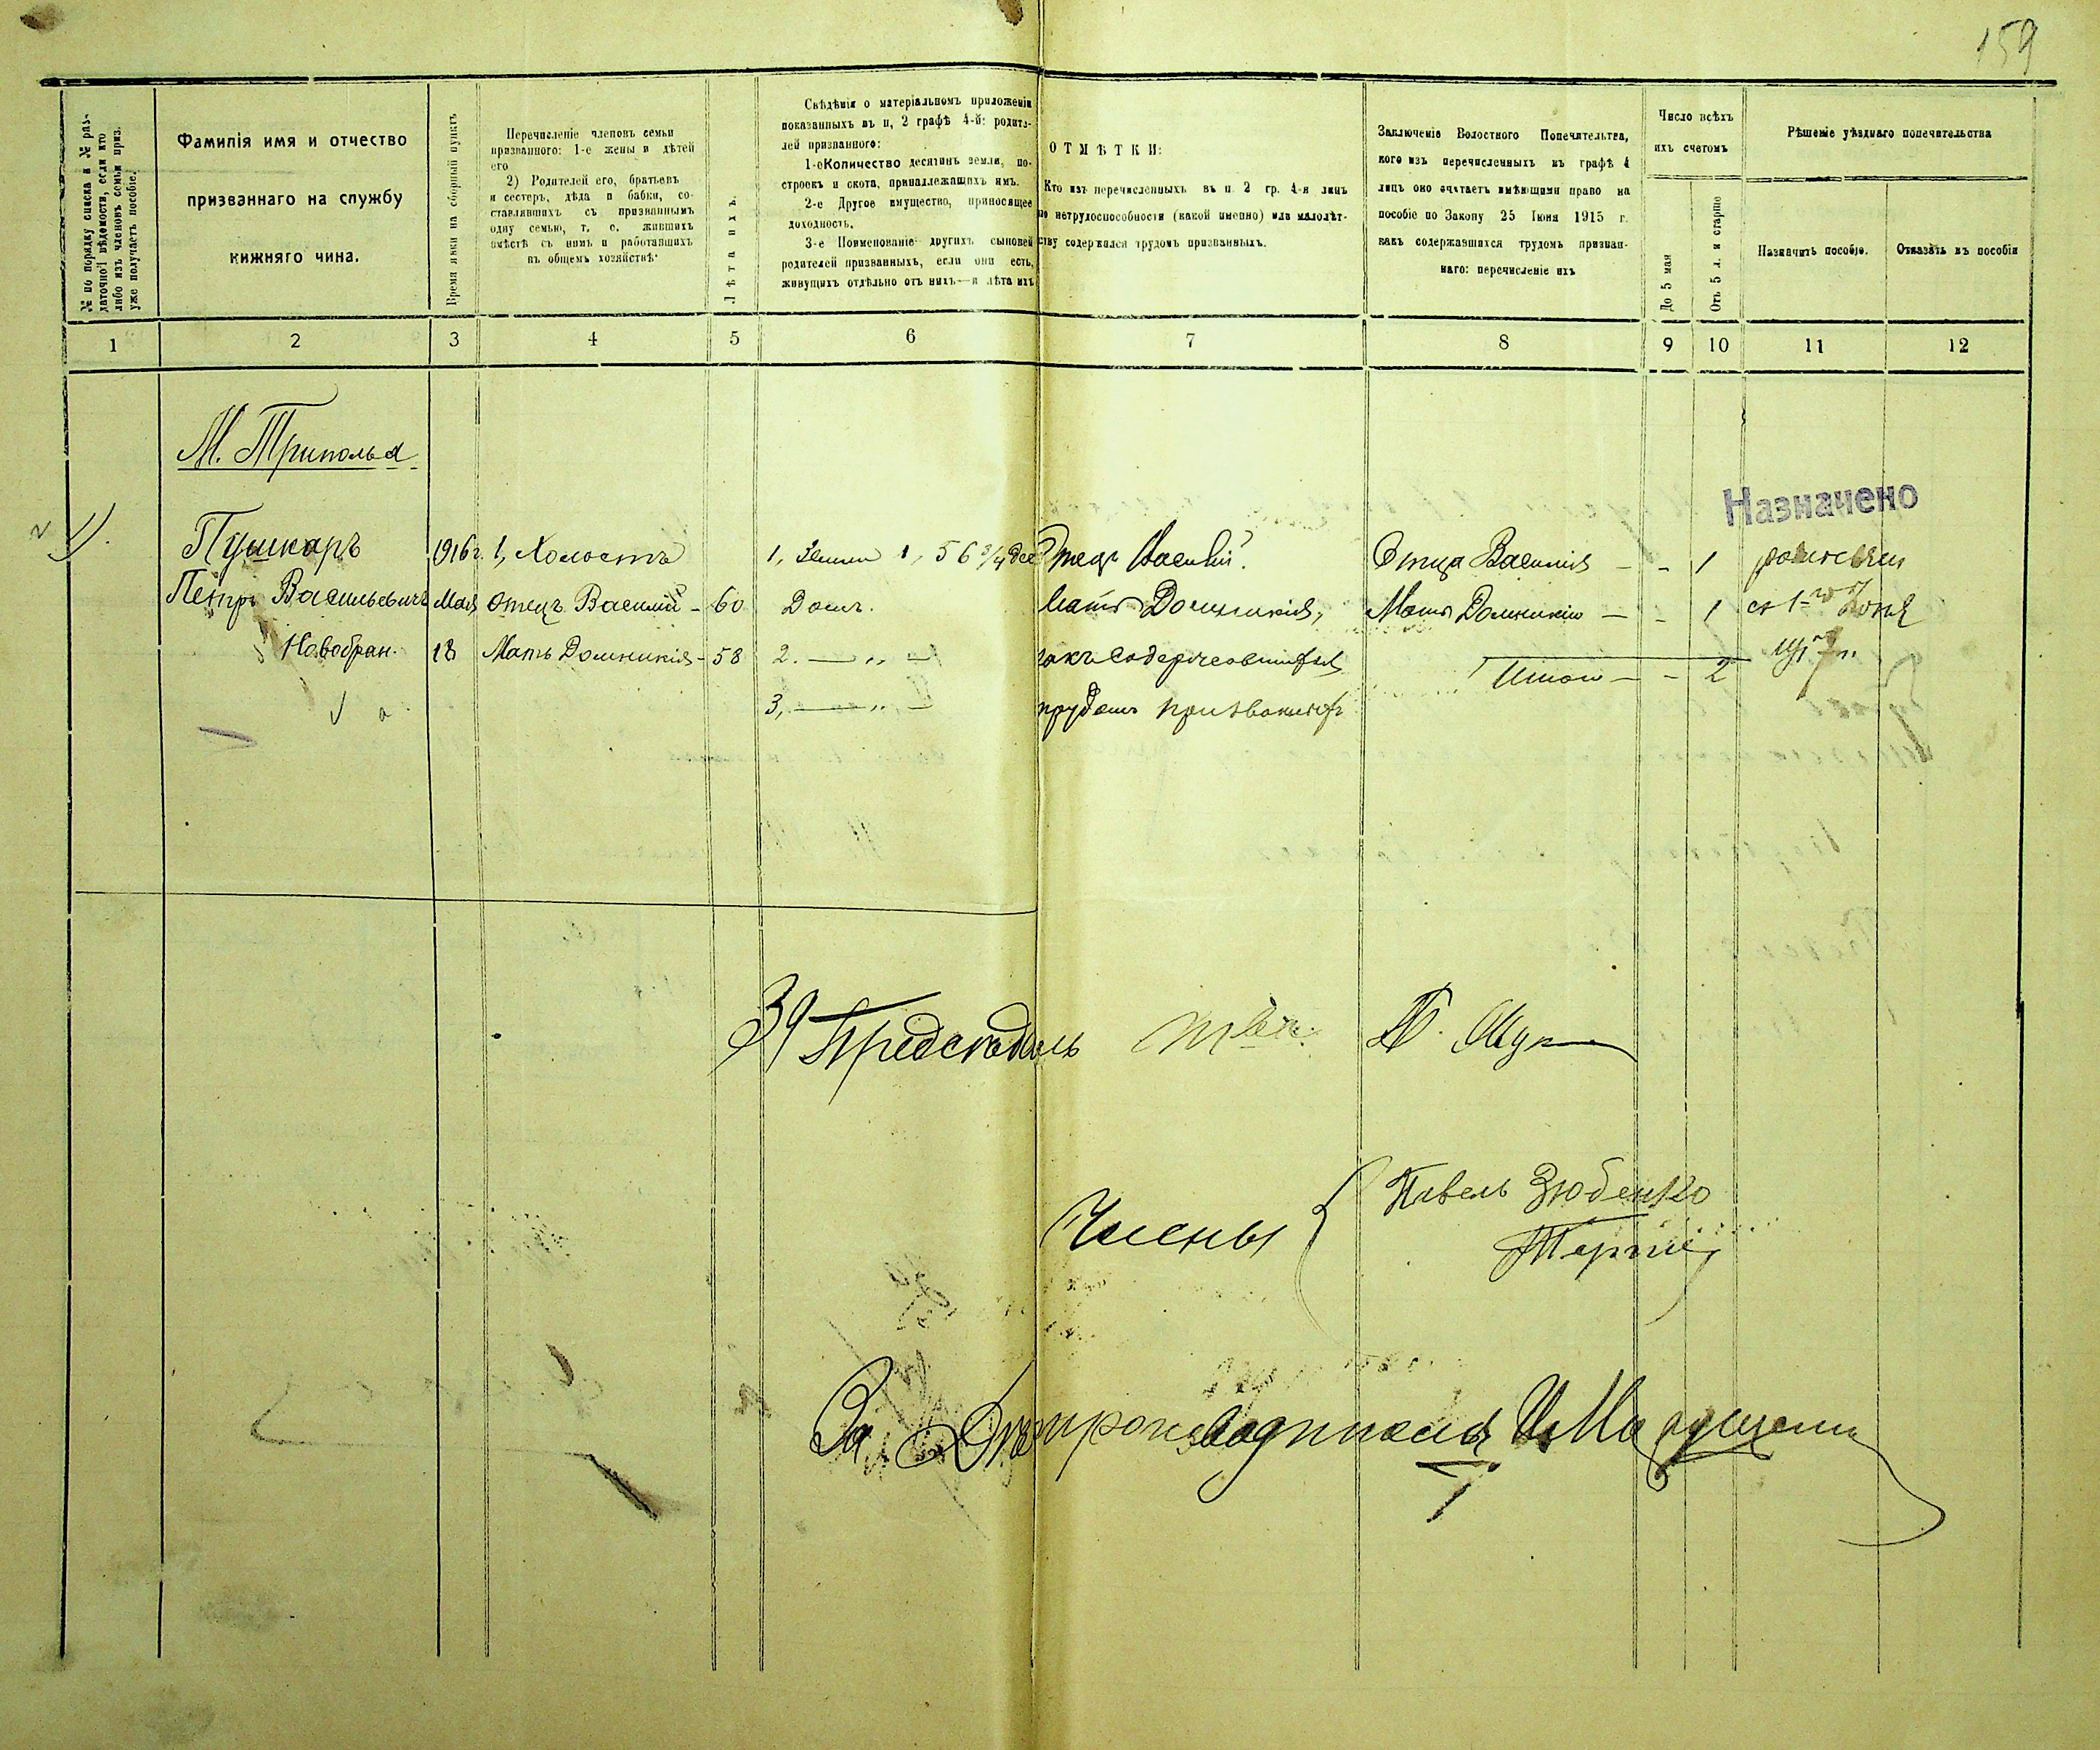 159
№ по порядку списка и № раз-
даточной вѣдомости, если кто
либо изъ членовъ семьи приз.
уже получаетъ пособіе.
Фамилія имя и отчество
призваннаго на службу
нижняго чина.
Время явки на сборный пунктъ
Перечисленіе членовъ семьи
призваннаго: 1-е жены и дѣтей
его
2) Родителей его, братьевъ
и сестеръ, дѣда и бабки, со-
ставлявшихъ съ призваннымъ
одну семью, т. е. жившихъ
вмѣстѣ съ нимъ и работавшихъ
въ общемъ хозяйствѣ
Лѣта ихъ.
Свѣдѣнія о матеріальномъ приложеніи
показанныхъ въ п, 2 графѣ 4-й: родите-
лей призваннаго:
1-е Количество десятинъ земли, по-
строекъ и скота, принадлежащихъ имъ.
2-е Другое имущество, приносящее
доходность.
3-е Поименованіе другихъ сыновей
родителей призванныхъ, если они есть,
живущихъ отдѣльно отъ нихъ—и лѣта ихъ
ОТМѢТКИ:
Кто изъ перечисленныхъ въ п. 2 гр. 4-я лицъ
по нетрудоспособности (какой именно) или малолѣт-
ству содержался трудомъ призванныхъ.
Заключеніе Волостного Попечительтва,
кого изъ перечисленныхъ въ графѣ 4
лицъ оно считаетъ имѣющими право на
пособіе по Закону 25 Іюня 1915 г.
какъ содержавшихся трудомъ призван-
наго: перечисленіе ихъ
Число всѣхъ
ихъ счетомъ
До 5 мая
Отъ 5 л. и старше
Рѣшеніе уѣзднаго попечительства
Назначить пособіе.
Отказать въ пособіи
1 2 3 4 5 6 7 8 9 10 11 12
М. Триполья
Назначено
1). Пушкаръ 1916 г. 1, Холостъ 1, Земли 1, 56 3/4 дес Отецъ Василій Отца Василія — - 1
Петръ Васильевичъ Мая Отецъ Василій - 60 Домъ. Мать Домникія, Мать Домникію — - 1
Новобран. 18 Мать Домникія - 58 2. — „ — какъ содержавшіяся Итого — - 2
3, — „ — трудомъ призваннаго
Члены
Павелъ Зюбенко